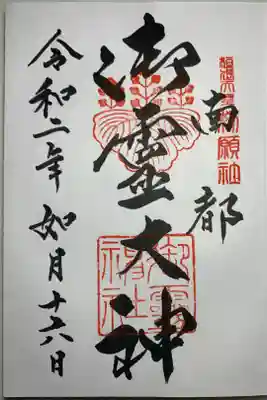 南都
御霊大神
御霊神社
令和二年 如月十六日